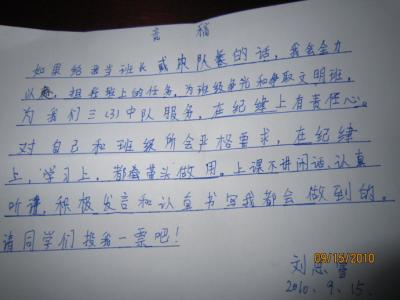 言 稿
如果给我当班长或中队长的话,我会全力
以赴,担兵班上的任务,为班级争光和争取文明班。
为我们三(3)中队服务,在纪律上有责任心。
对自己和班级所会严格要求,在纪律
上,学习上,都起带头做用。上课不讲闲话、认真
听讲,积极发言和认真书写我都会做到的。
请同学们投我一票吧!
09/15/2010
刘思
2010.9.15.